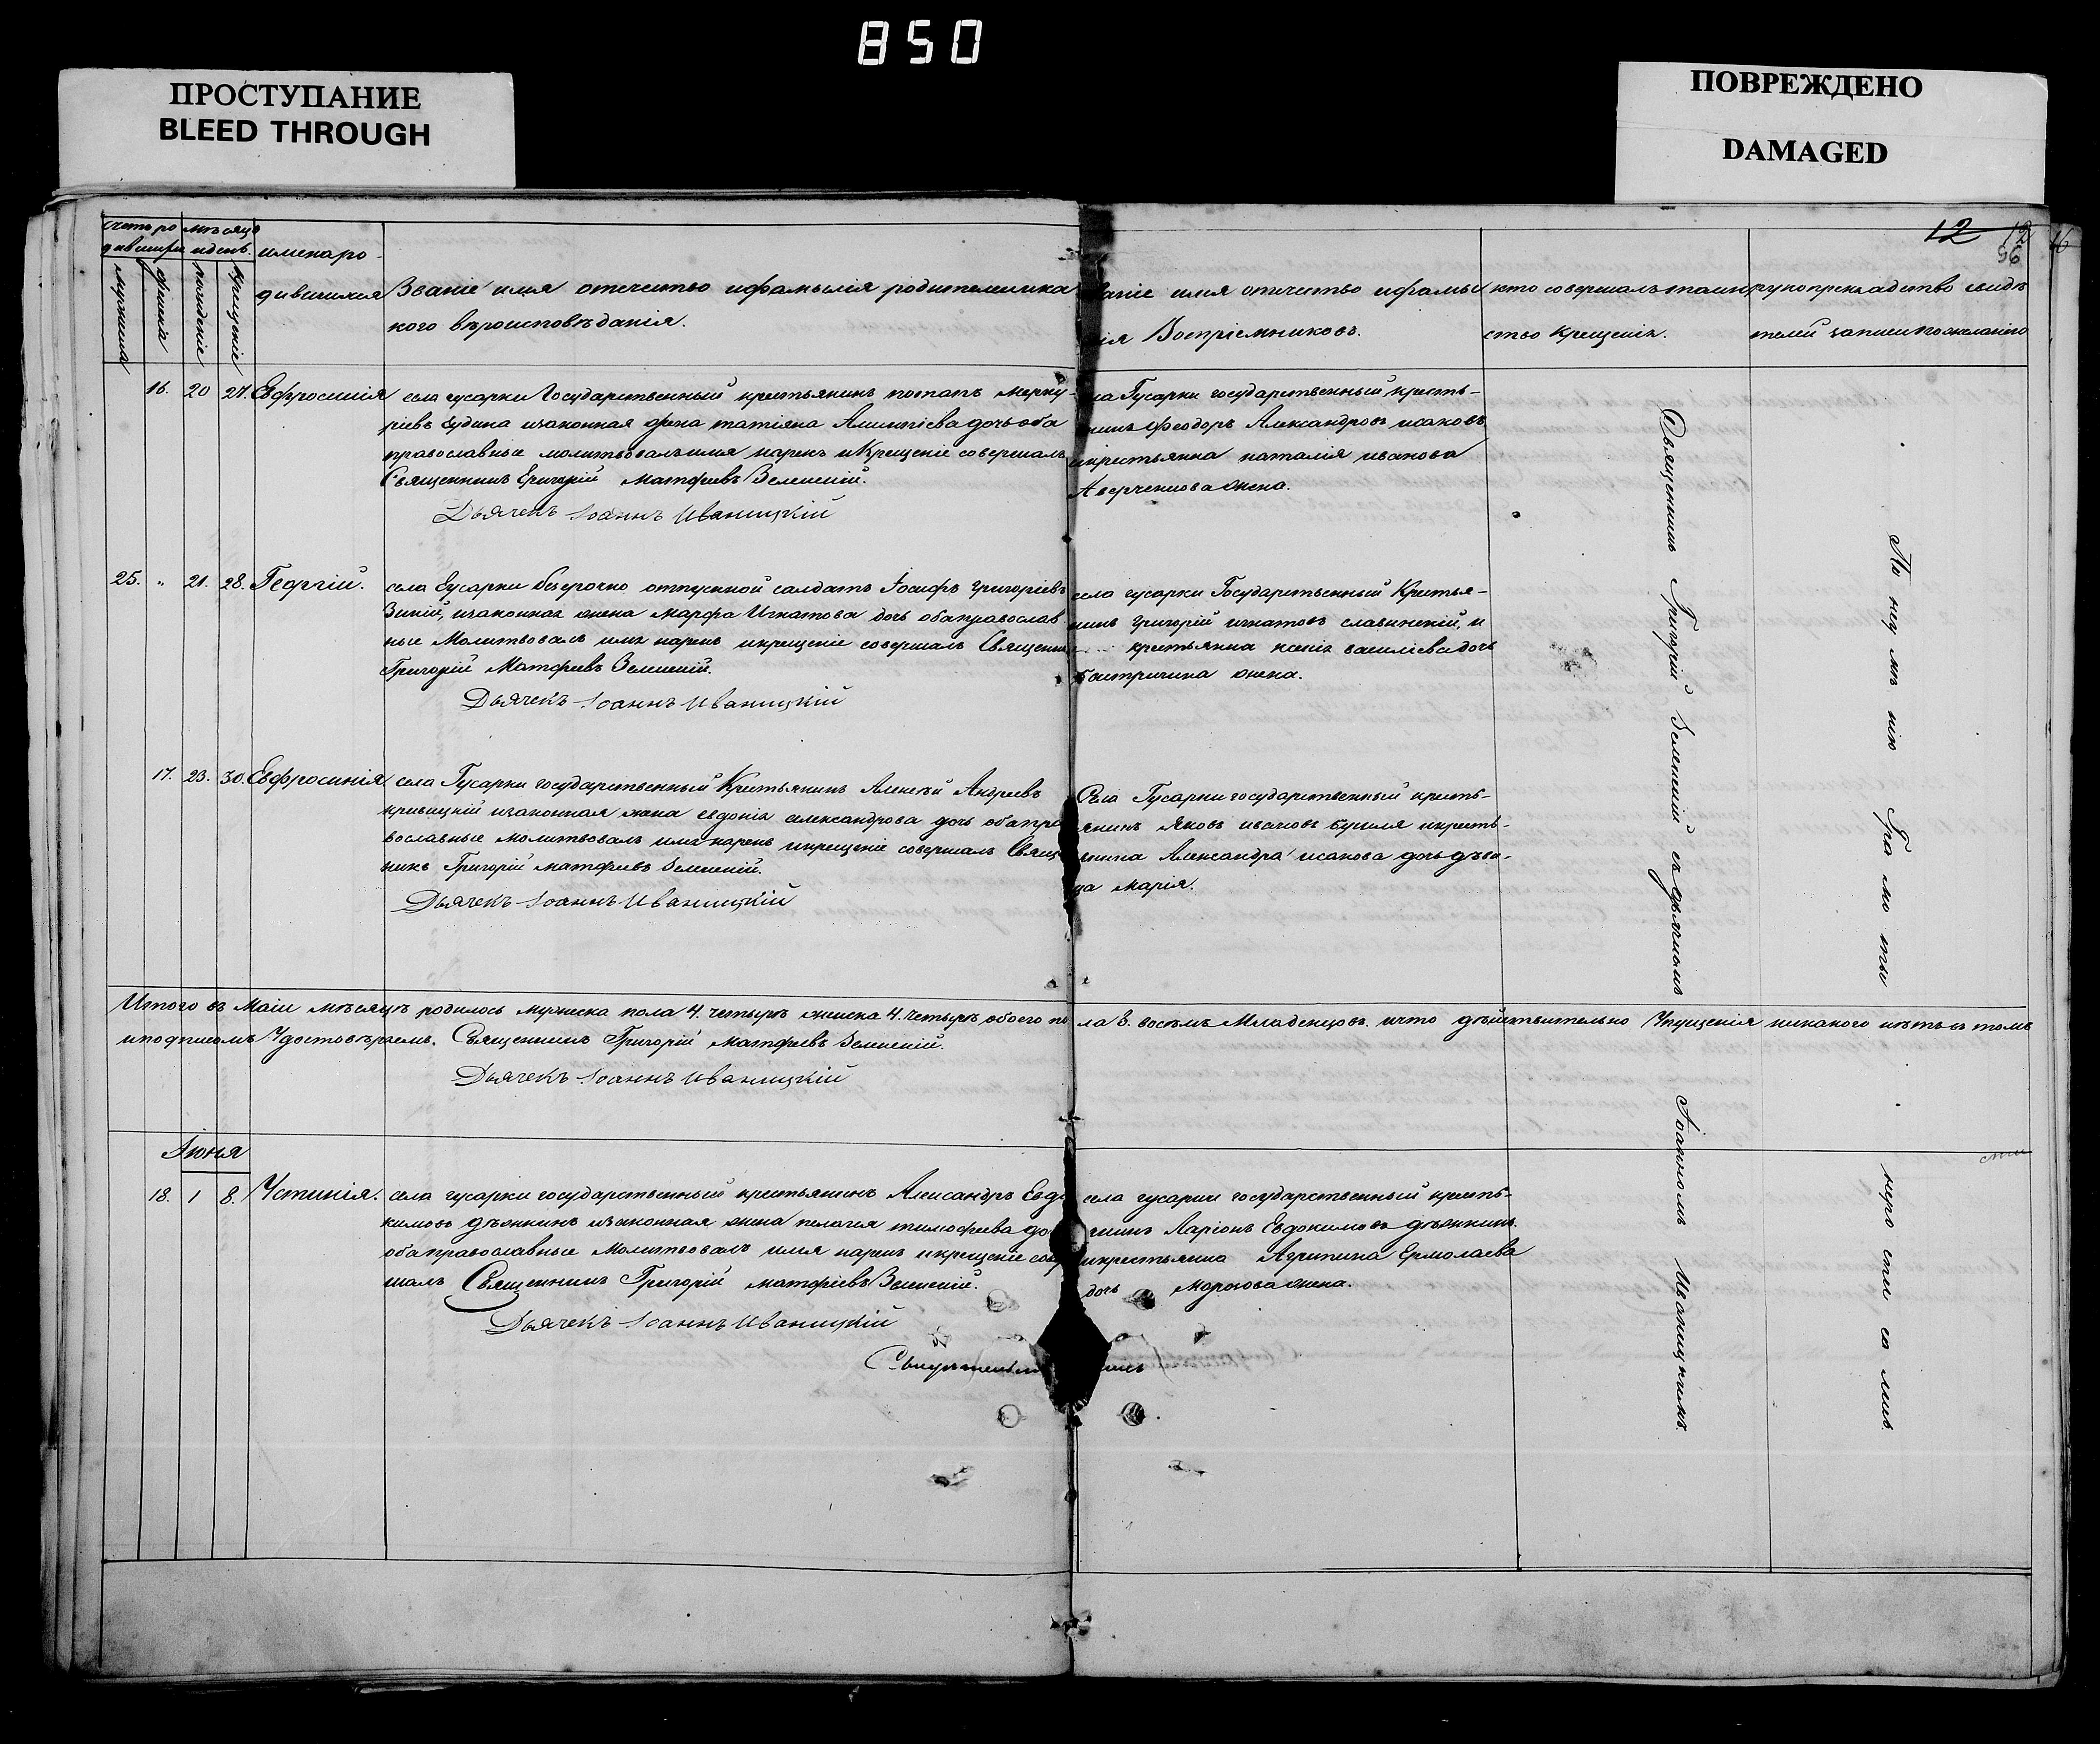 850
ПРОСТУПАНИЕ
BLEED THROUGH
ПОВРЕЖДЕНО
DAMAGED
12 12
56
16
счетъ ро мѣсяцъ
дившихся идень. имена ро-
мужеска женска рожденіе крещеніе
дившихся Званіе имя отечество ифамилія родителей ика
кого вѣроисповѣданія.
званіе имя отечество ифамил
ія Воспріемниковъ.
кто совершалъ таин
ство Крещенія.
рукоприкладство свидѣ
телей записи пожеланію
16. 20 27. Евфросинія села гусарки Государственный крестьянинъ потапъ Мерку-
ріевъ изаконная жена татіана дочь оба
православные молитвовалъ имя нарекъ и Крещеніе совершалъ
Священникъ Григорій Матфеевъ Зеленскій.
Дьячекъ Іоаннъ Иваницкій
села Гусарки государственный кресть-
янинъ Феодоръ Александровъ исаковъ
икрестьянка наталія иванова
Аверченкова жена.
25. " 21. 28. Георгій. села Гусарки безсрочно отпускной салдатъ Іосифъ Григоріевъ
изаконная жена Марфа Игнатова дочь оба православ
ные Молитвовалъ имя нарекъ икрещеніе совершалъ Священни
Григорій Матфеевъ Зеленскій.
Дьячекъ Іоаннъ Иваницкій
села гусарки Государственный Крестья-
нинъ григорій игнатовъ славинскій, и
крестьянка ксенія василіева дочь
жена.
17. 23. 30. Евфросинія села Гусарки государственный Крестьянинъ Алексѣй Андреевъ
кривицкій изаконная жена евдокія александрова дочь оба пра
вославные молитвовалъ имя нарекъ икрещеніе совершалъ Свящ
никъ Григорій матфеевъ Зеленскій.
Дьячекъ Іоаннъ Иваницкій
Села Гусарки государственный кресть-
янинъ Яковъ ивановъ икресть-
янина Александра исакова дочь дѣви-
ца Марія.
Итого въ Маіи мѣсяцѣ родилось мужеска пола 4. четыре женска 4. Четыре обоего по ла 8. восемъ Младенцовъ. что дѣйствительно Упущенія никакого нѣтъ въ томъ
иподписомъ Удостовѣряемъ. Священникъ Григорій Матфеевъ Зеленскій.
Дьячекъ Іоаннъ Иваницкій
Іюня
18. 1 8. Устинія. села гусарки государственный крестьянинъ Александръ Евдо
кимовъ дѣжкинъ изаконная жена пелагея тимофеева до
оба православные Молитвовалъ имя нарекъ икрещеніе сов
шалъ Священникъ Григорій матфеевъ Зеленскій.
Дьячекъ Іоаннъ Иваницкій
села гусарки государственный кресть-
янинъ Ларіонъ Евдокимовъ дѣжкинъ
икрестьянка Агрипина Ермолаева
дочь Моркова жена.
Священникъ Григорій Зеленскій съ дьячкомъ
Іоанномъ Иваницкимъ.
По неумѣнію Грамоты